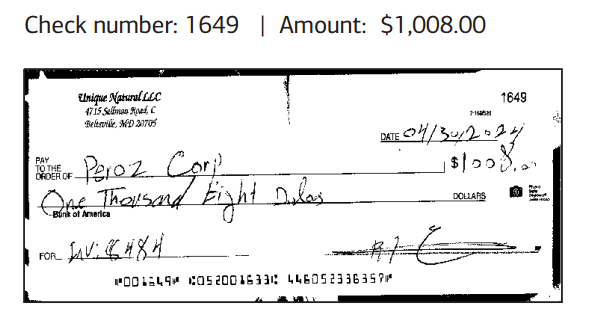 Check number: 1649 | Amount: $1,008.00
Unique Natural LLC
4715 Sellman Road, C
Beltsville, MD 20705
1649
DATE 04/30/2024
PAY
TO THE
ORDER OF Peroz Corp
$1008.00
One Thousand Eight Dolas DOLLARS
Bank of America
FOR INV: 8484